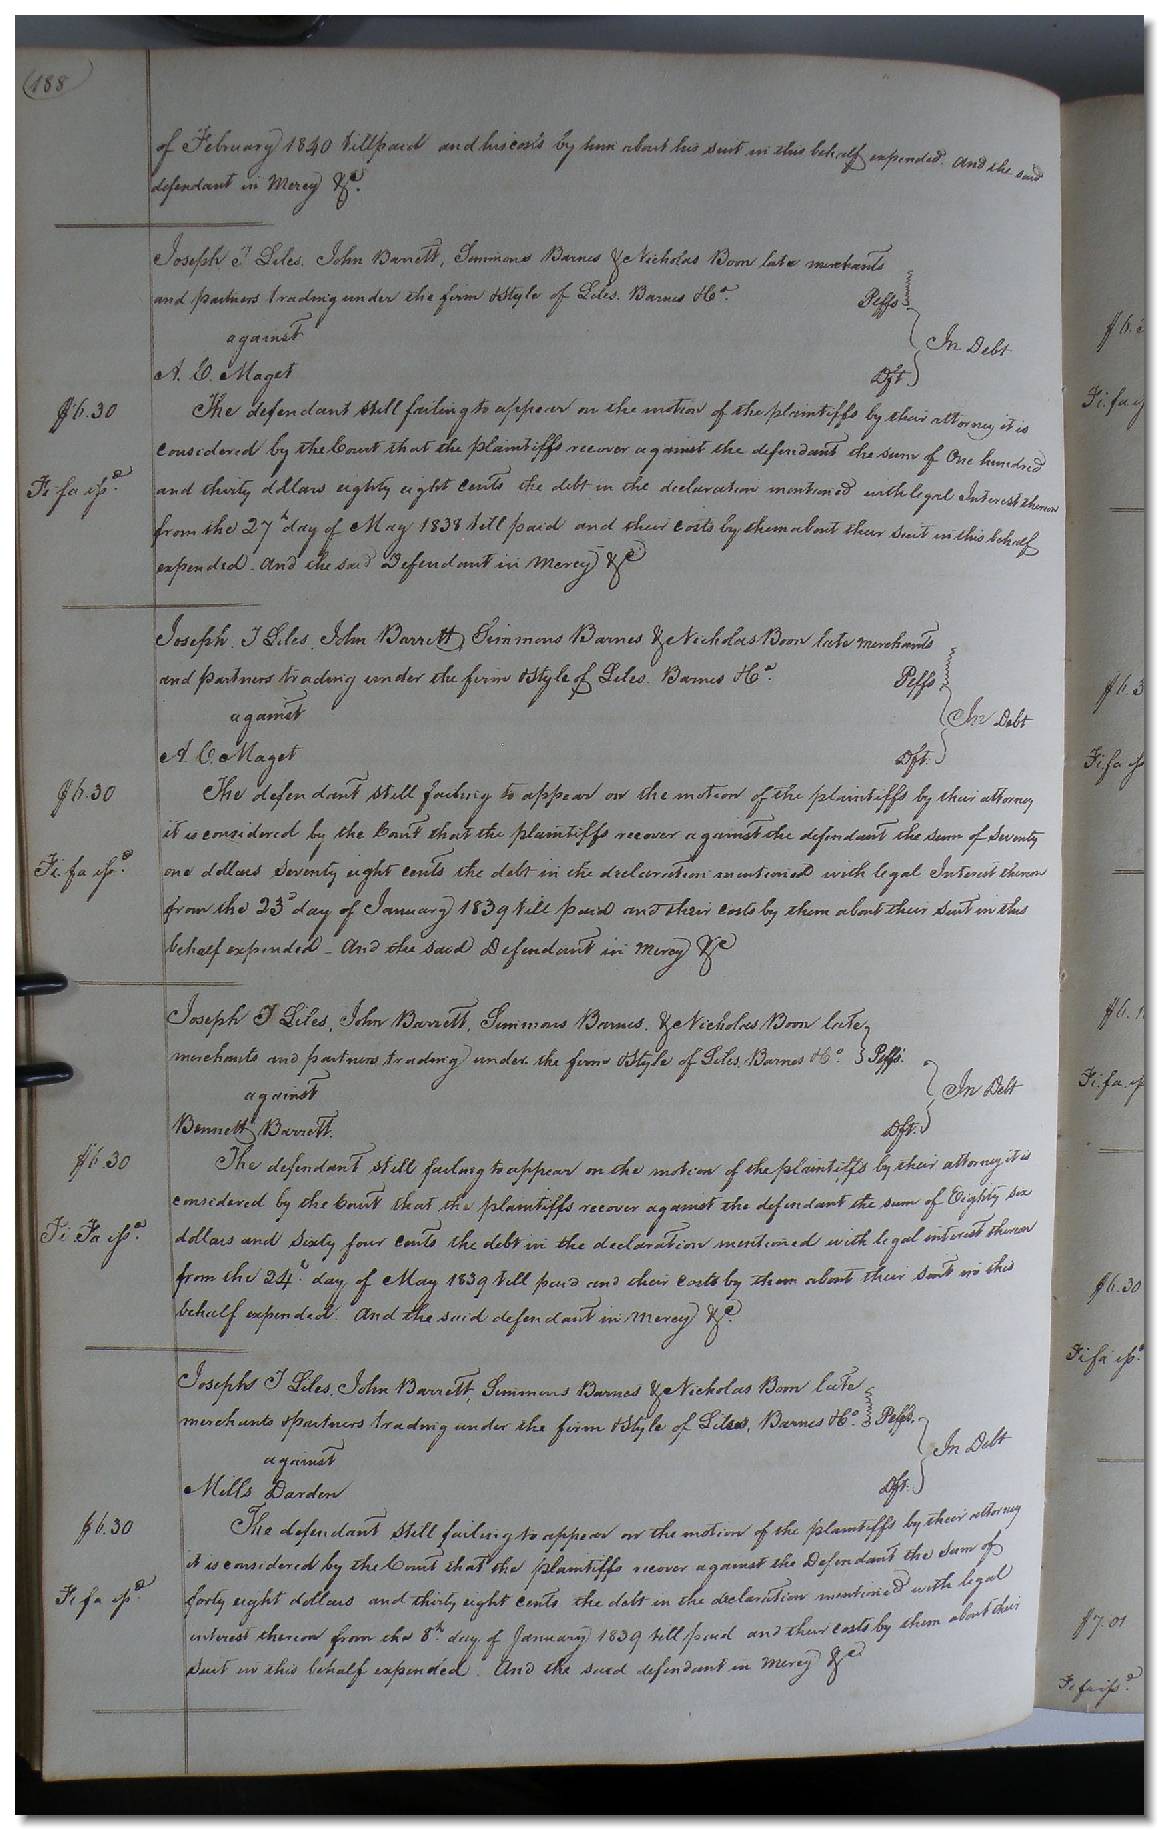 188
of February 1840 till paid and his costs by him about his suit in this behalf expended. And the said
defendant in Mercy &c.
Joseph T Liles. John Barrett, Simmons Barnes & Nicholas Boon late merchants
and partners trading under the firm & Style of Liles. Barnes & Co. Peffs
against In Debt
A. C. Maget Dft.
$6.30 The defendant still failing to appear on the motion of the plaintiffs by their attorney it is
considered by the Court that the plaintiffs recover against the defendant the sum of One hundred
Fi fa issd. and thirty dollars eighty eight cents the debt in the declaration mentioned with legal Interest thereon
from the 27th day of May 1838 till paid and their costs by them about their suit in this behalf
expended. And the said Defendant in Mercy &c
Joseph. T Liles, John Barrett, Simmons Barnes & Nicholas Boon late merchants
and partners trading under the firm & Style of Liles. Barnes & Co. Peffs
against In Debt
A. C. Maget Dft.
$6.30 The defendant still failing to appear on the motion of the plaintiffs by their attorney
it is considered by the Court that the plaintiffs recover against the defendant the sum of Seventy
Fi. fa issd. one dollars Seventy eight cents the debt in the declaration mentioned with legal Interest thereon
from the 23d day of January 1839 till paid and their costs by them about their suit in this
behalf expended - And the said Defendant in Mercy &c
Joseph T Liles, John Barrett, Simmons Barnes. & Nicholas Boon late
merchants and partners trading under the firm & Style of Liles, Barnes & Co. Peffs.
against In Debt
Bennett Barrett. Dft.
$6.30 The defendant still failing to appear on the motion of the plaintiffs by their attorney it is
considered by the Court that the plaintiffs recover against the defendant the sum of Eighty six
Fi Fa issd. dollars and Sixty four cents the debt in the declaration mentioned with legal interest thereon
from the 24th day of May 1839 till paid and their costs by them about their suit in this
behalf expended. And the said defendant in Mercy &c.
Joseph T Liles, John Barrett, Simmons Barnes & Nicholas Boon late
merchants & partners trading under the firm & Style of Liles, Barnes & Co. Peffs.
against In Debt
Mills Darden Dft.
$6.30 The defendant still failing to appear on the motion of the plaintiffs by their attorney
it is considered by the Court that the plaintiffs recover against the Defendant the Sum of
Fi fa issd. forty eight dollars and thirty eight cents the debt in the declaration mentioned with legal
interest thereon from the 8th day of January 1839 till paid and their costs by them about their
suit in this behalf expended. And the said defendant in mercy &c
Fi. fa
Fi fa
Fi. fa
$6.30
Fi fa issd.
$7.01
Fi fa issd.